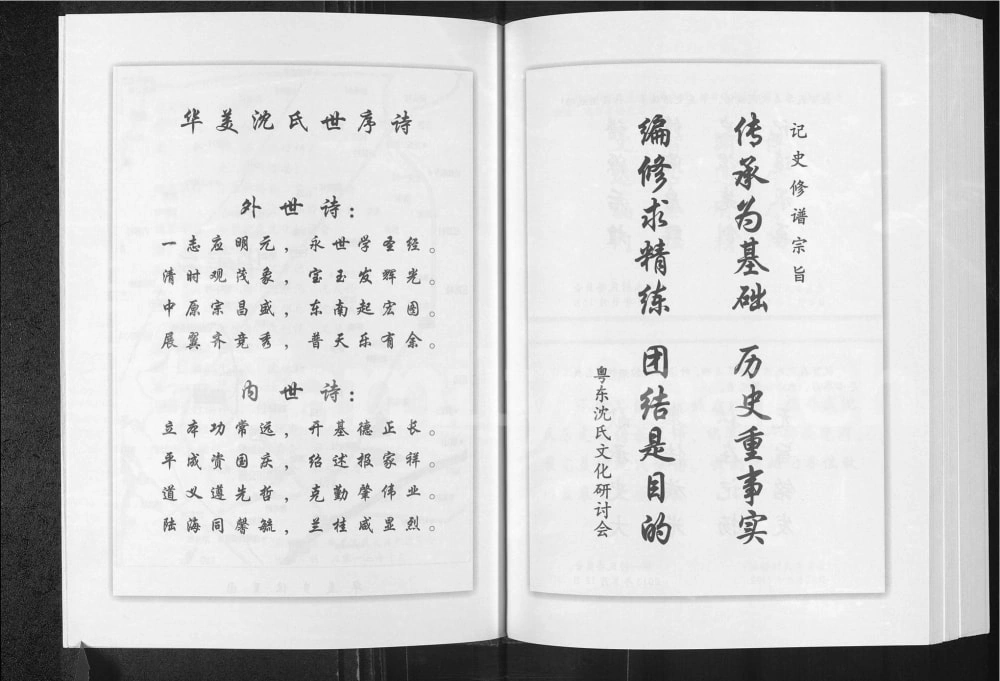 华美沈氏世序诗
外世诗：
一志应明元，永世学圣经。
清时观茂象，宝玉发辉光。
中原宗昌盛，东南起宏图。
展翼齐竞秀，普天乐有余。
内世诗：
立本功常远，开基德正长。
平成资国庆，绍述报家祥。
道义遵先哲，克勤肇伟业。
陆海同馨毓，兰桂咸显烈。
记史修谱宗旨
传承为基础 历史重事实
编修求精练 团结是目的
粤东沈氏文化研讨会